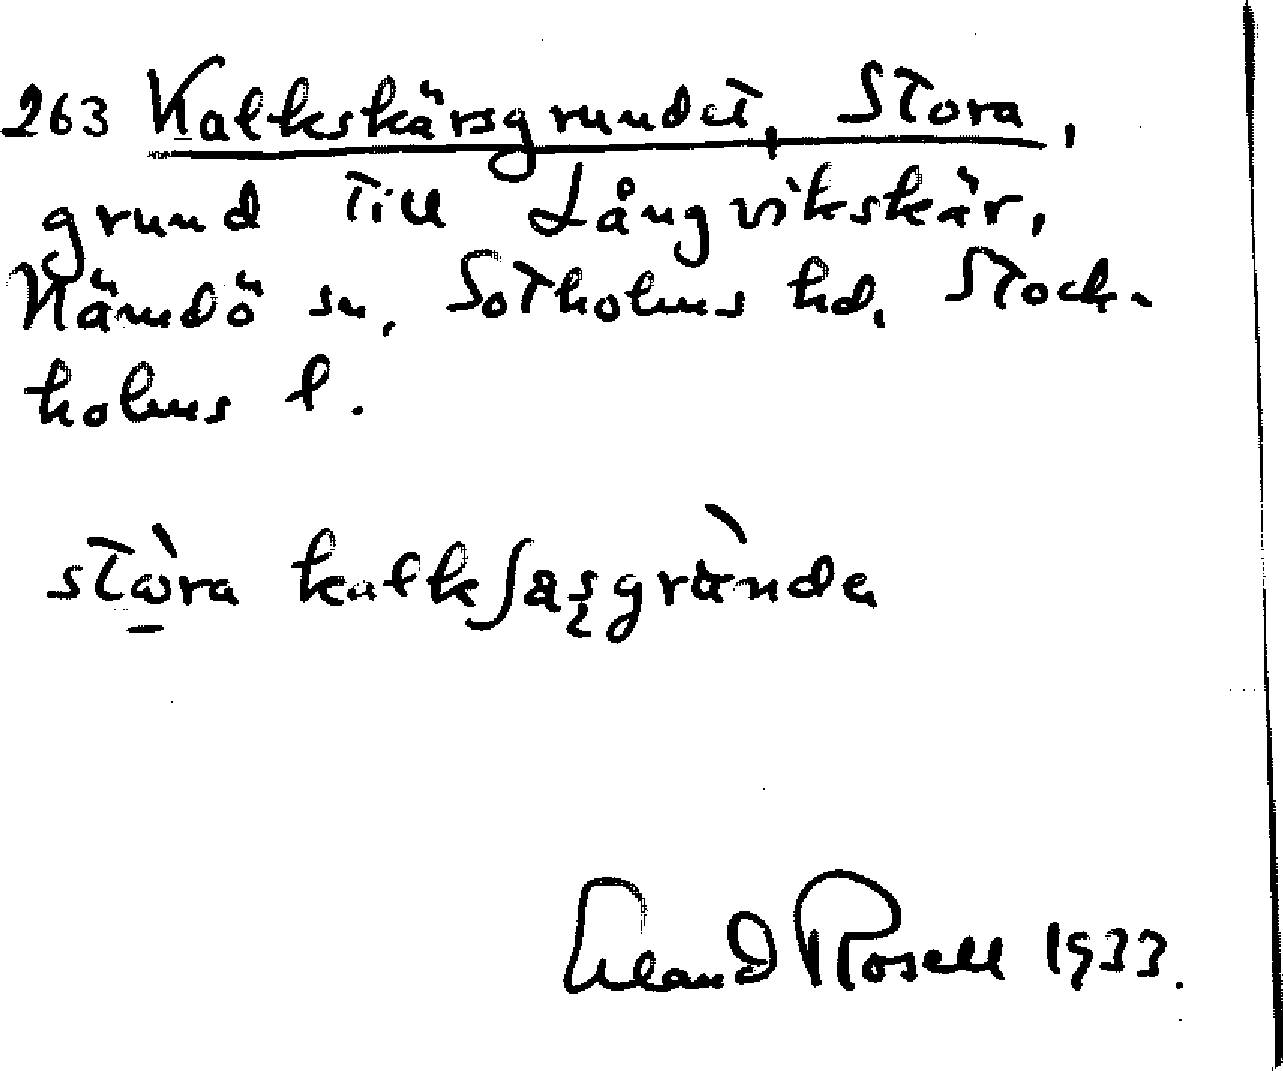 263 Kalkskärsgrundet, Stora,
grund till Långvikskär,
Nämdö sn, Sotholms hd, Stock-
holms l.
stò̱ra kalkʃa̤ʂgrànde
Erland Rosell 1933.